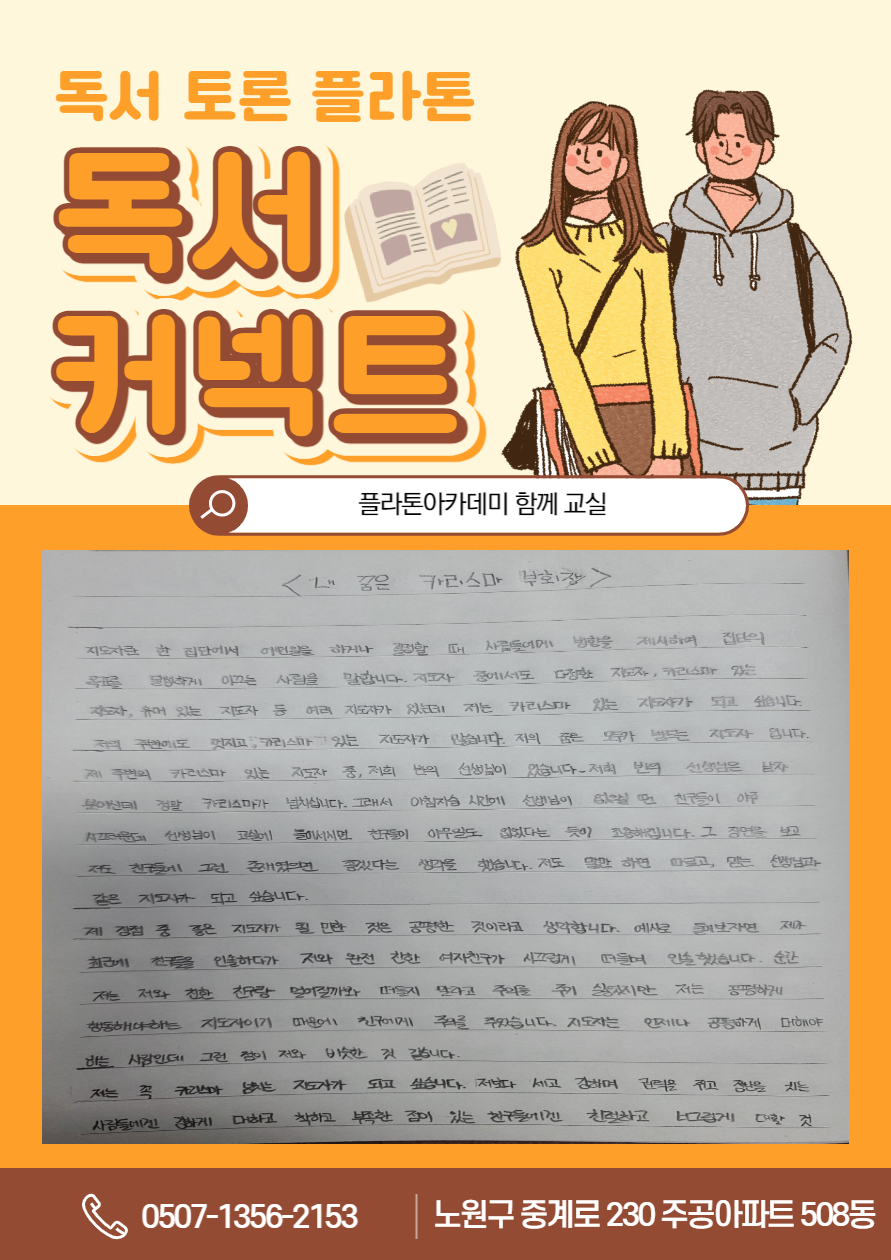 독서 토론 플라톤
독서
커넥트
플라톤아카데미 함께 교실
<내 꿈은 카리스마 부회장>
지도자란 한 집단에서 어떤일을 하거나 결정할 때 사람들에게 방향을 제시하며 집단의
목표를 분명하게 이끄는 사람을 말합니다. 지도자 중에서도 다정한 지도자, 카리스마 있는
지도자, 유머 있는 지도자 등 여러 지도자가 있는데 저는 카리스마 있는 지도자가 되고 싶습니다.
저의 주변에도 멋지고, 카리스마 있는 지도자가 많습니다. 저의 꿈은 모두가 따르는 지도자 입니다.
제 주변의 카리스마 있는 지도자 중, 저희 반의 선생님이 있습니다. 저희 반의 선생님은 남자
분이신데 정말 카리스마가 넘치십니다. 그래서 아침자습 시간에 선생님이 없으실 땐 친구들이 아주
시끄러운데 선생님이 교실에 들어서시면 친구들이 아무말도 없었다는 듯이 조용해집니다. 그 장면을 보고
저도 친구들에게 그런 존재였으면 좋겠다는 생각을 했습니다. 저도 말만 하면 따르고, 믿는 선생님과
같은 지도자가 되고 싶습니다.
제 장점 중 좋은 지도자가 될 만한 것은 공평한 것이라고 생각합니다. 예시로 들어보자면 제가
최근에 친구들을 인솔하다가 저와 완전 친한 여자친구가 시끄럽게 떠들며 인솔했습니다. 순간
저는 저와 친한 친구랑 멀어질까봐 떠들지 말라고 주의를 주기 싫었지만 저는 공평하게
행동해야하는 지도자이기 때문에 친구에게 주의를 주었습니다. 지도자는 언제나 공평하게 대해야
하는 사람인데 그런 점이 저와 비슷한 것 같습니다.
저는 꼭 카리스마 넘치는 지도자가 되고 싶습니다. 저보다 세고 강하며 권력을 쥐고 있는
사람들에겐 강하게 대하고 착하고 부족한 점이 있는 친구들에겐 친절하고 너그럽게 대할 것
0507-1356-2153
노원구 중계로 230 주공아파트 508동